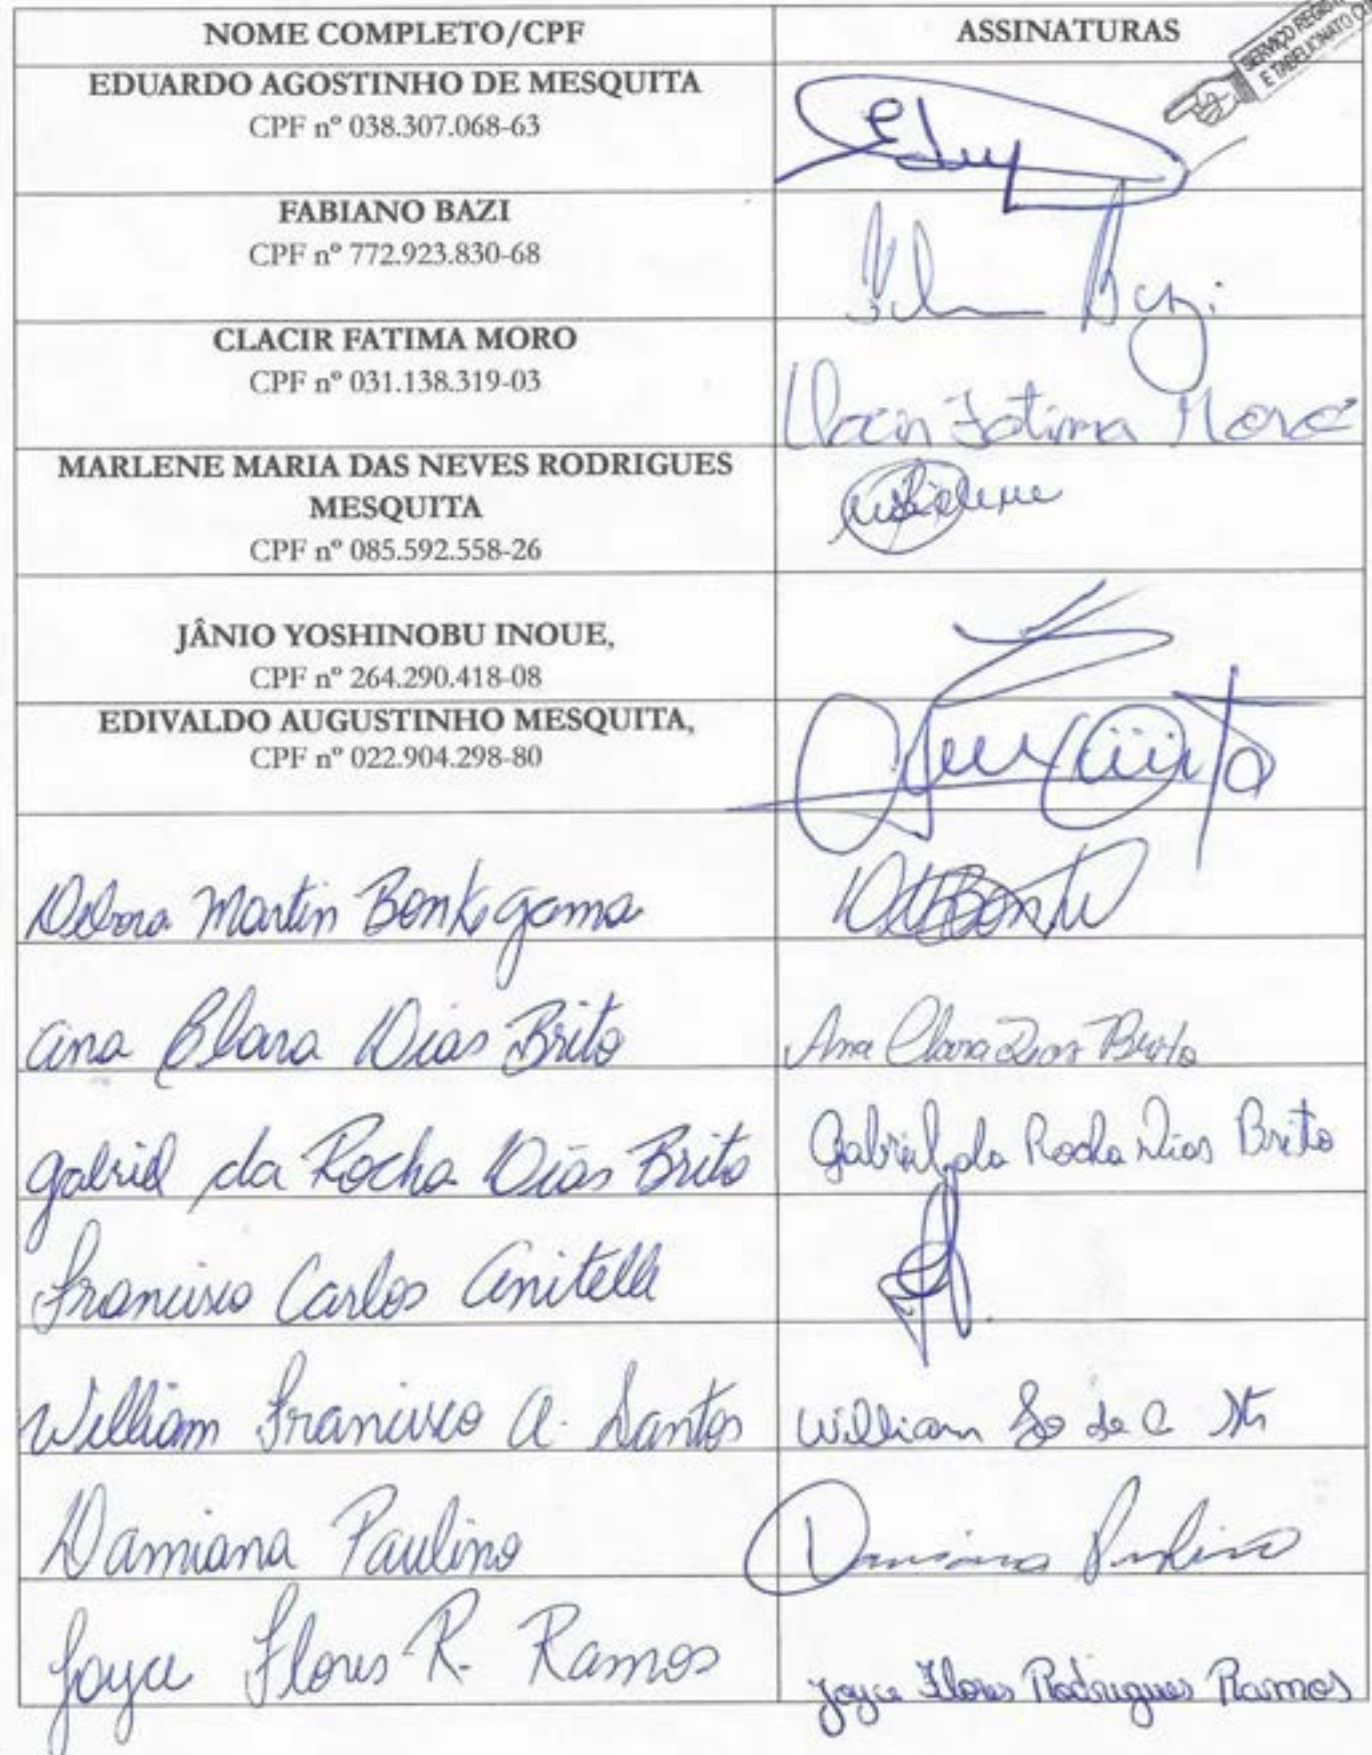 NOME COMPLETO/CPF ASSINATURAS
SERVIÇO REGISTRAL
E TABELIONATO
EDUARDO AGOSTINHO DE MESQUITA
CPF nº 038.307.068-63
FABIANO BAZI
CPF nº 772.923.830-68
Bazi
CLACIR FATIMA MORO
CPF nº 031.138.319-03
Clacir Fatima Moro
MARLENE MARIA DAS NEVES RODRIGUES
MESQUITA
CPF nº 085.592.558-26
JÂNIO YOSHINOBU INOUE,
CPF nº 264.290.418-08
EDIVALDO AUGUSTINHO MESQUITA,
CPF nº 022.904.298-80
Debora Martin Bonk gama
ana Clara Dias Brito Ana Clara Dias Brito
gabriel da Rocha Dias Brito Gabriel da Rocha Dias Brito
Francisco Carlos Anitelle
William Francisco A. Santos William
Damiana Paulino Damiana Paulino
Joyce Flores R. Ramos Joyce Flores Rodrigues Ramos